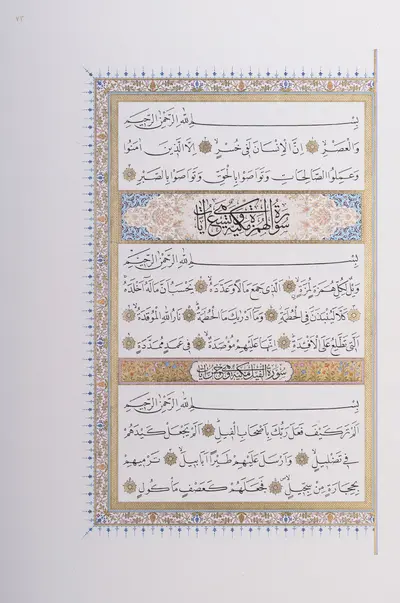 ٧٣
بِسْمِ اللهِ الرَّحْمٰنِ الرَّحِيمِ
وَالْعَصْرِ اِنَّ الْاِنْسَانَ لَفٖى خُسْرٍ اِلَّا الَّذٖينَ اٰمَنُوا
وَعَمِلُوا الصَّالِحَاتِ وَتَوَاصَوْا بِالْحَقِّ وَتَوَاصَوْا بِالصَّبْرِ
سورة الهمزة مكية وهي تسع آيات
بِسْمِ اللهِ الرَّحْمٰنِ الرَّحِيمِ
وَيْلٌ لِكُلِّ هُمَزَةٍ لُمَزَةٍ اَلَّذٖى جَمَعَ مَالًا وَعَدَّدَهُ يَحْسَبُ اَنَّ مَالَهُ اَخْلَدَهُ
كَلَّا لَيُنْبَذَنَّ فِى الْحُطَمَةِ وَمَا اَدْرٰيكَ مَا الْحُطَمَةُ نَارُ اللهِ الْمُوقَدَةُ
اَلَّتٖى تَطَّلِعُ عَلَى الْاَفْـِٔدَةِ اِنَّهَا عَلَيْهِمْ مُؤْصَدَةٌ فٖى عَمَدٍ مُمَدَّدَةٍ
سورة الفيل مكية وهي خمس آيات
بِسْمِ اللهِ الرَّحْمٰنِ الرَّحِيمِ
اَلَمْ تَرَ كَيْفَ فَعَلَ رَبُّكَ بِاَصْحَابِ الْفٖيلِ اَلَمْ يَجْعَلْ كَيْدَهُمْ
فٖى تَضْلٖيلٍ وَاَرْسَلَ عَلَيْهِمْ طَيْرًا اَبَابٖيلَ تَرْمٖيهِمْ
بِحِجَارَةٍ مِنْ سِجّٖيلٍ فَجَعَلَهُمْ كَعَصْفٍ مَأْكُولٍ